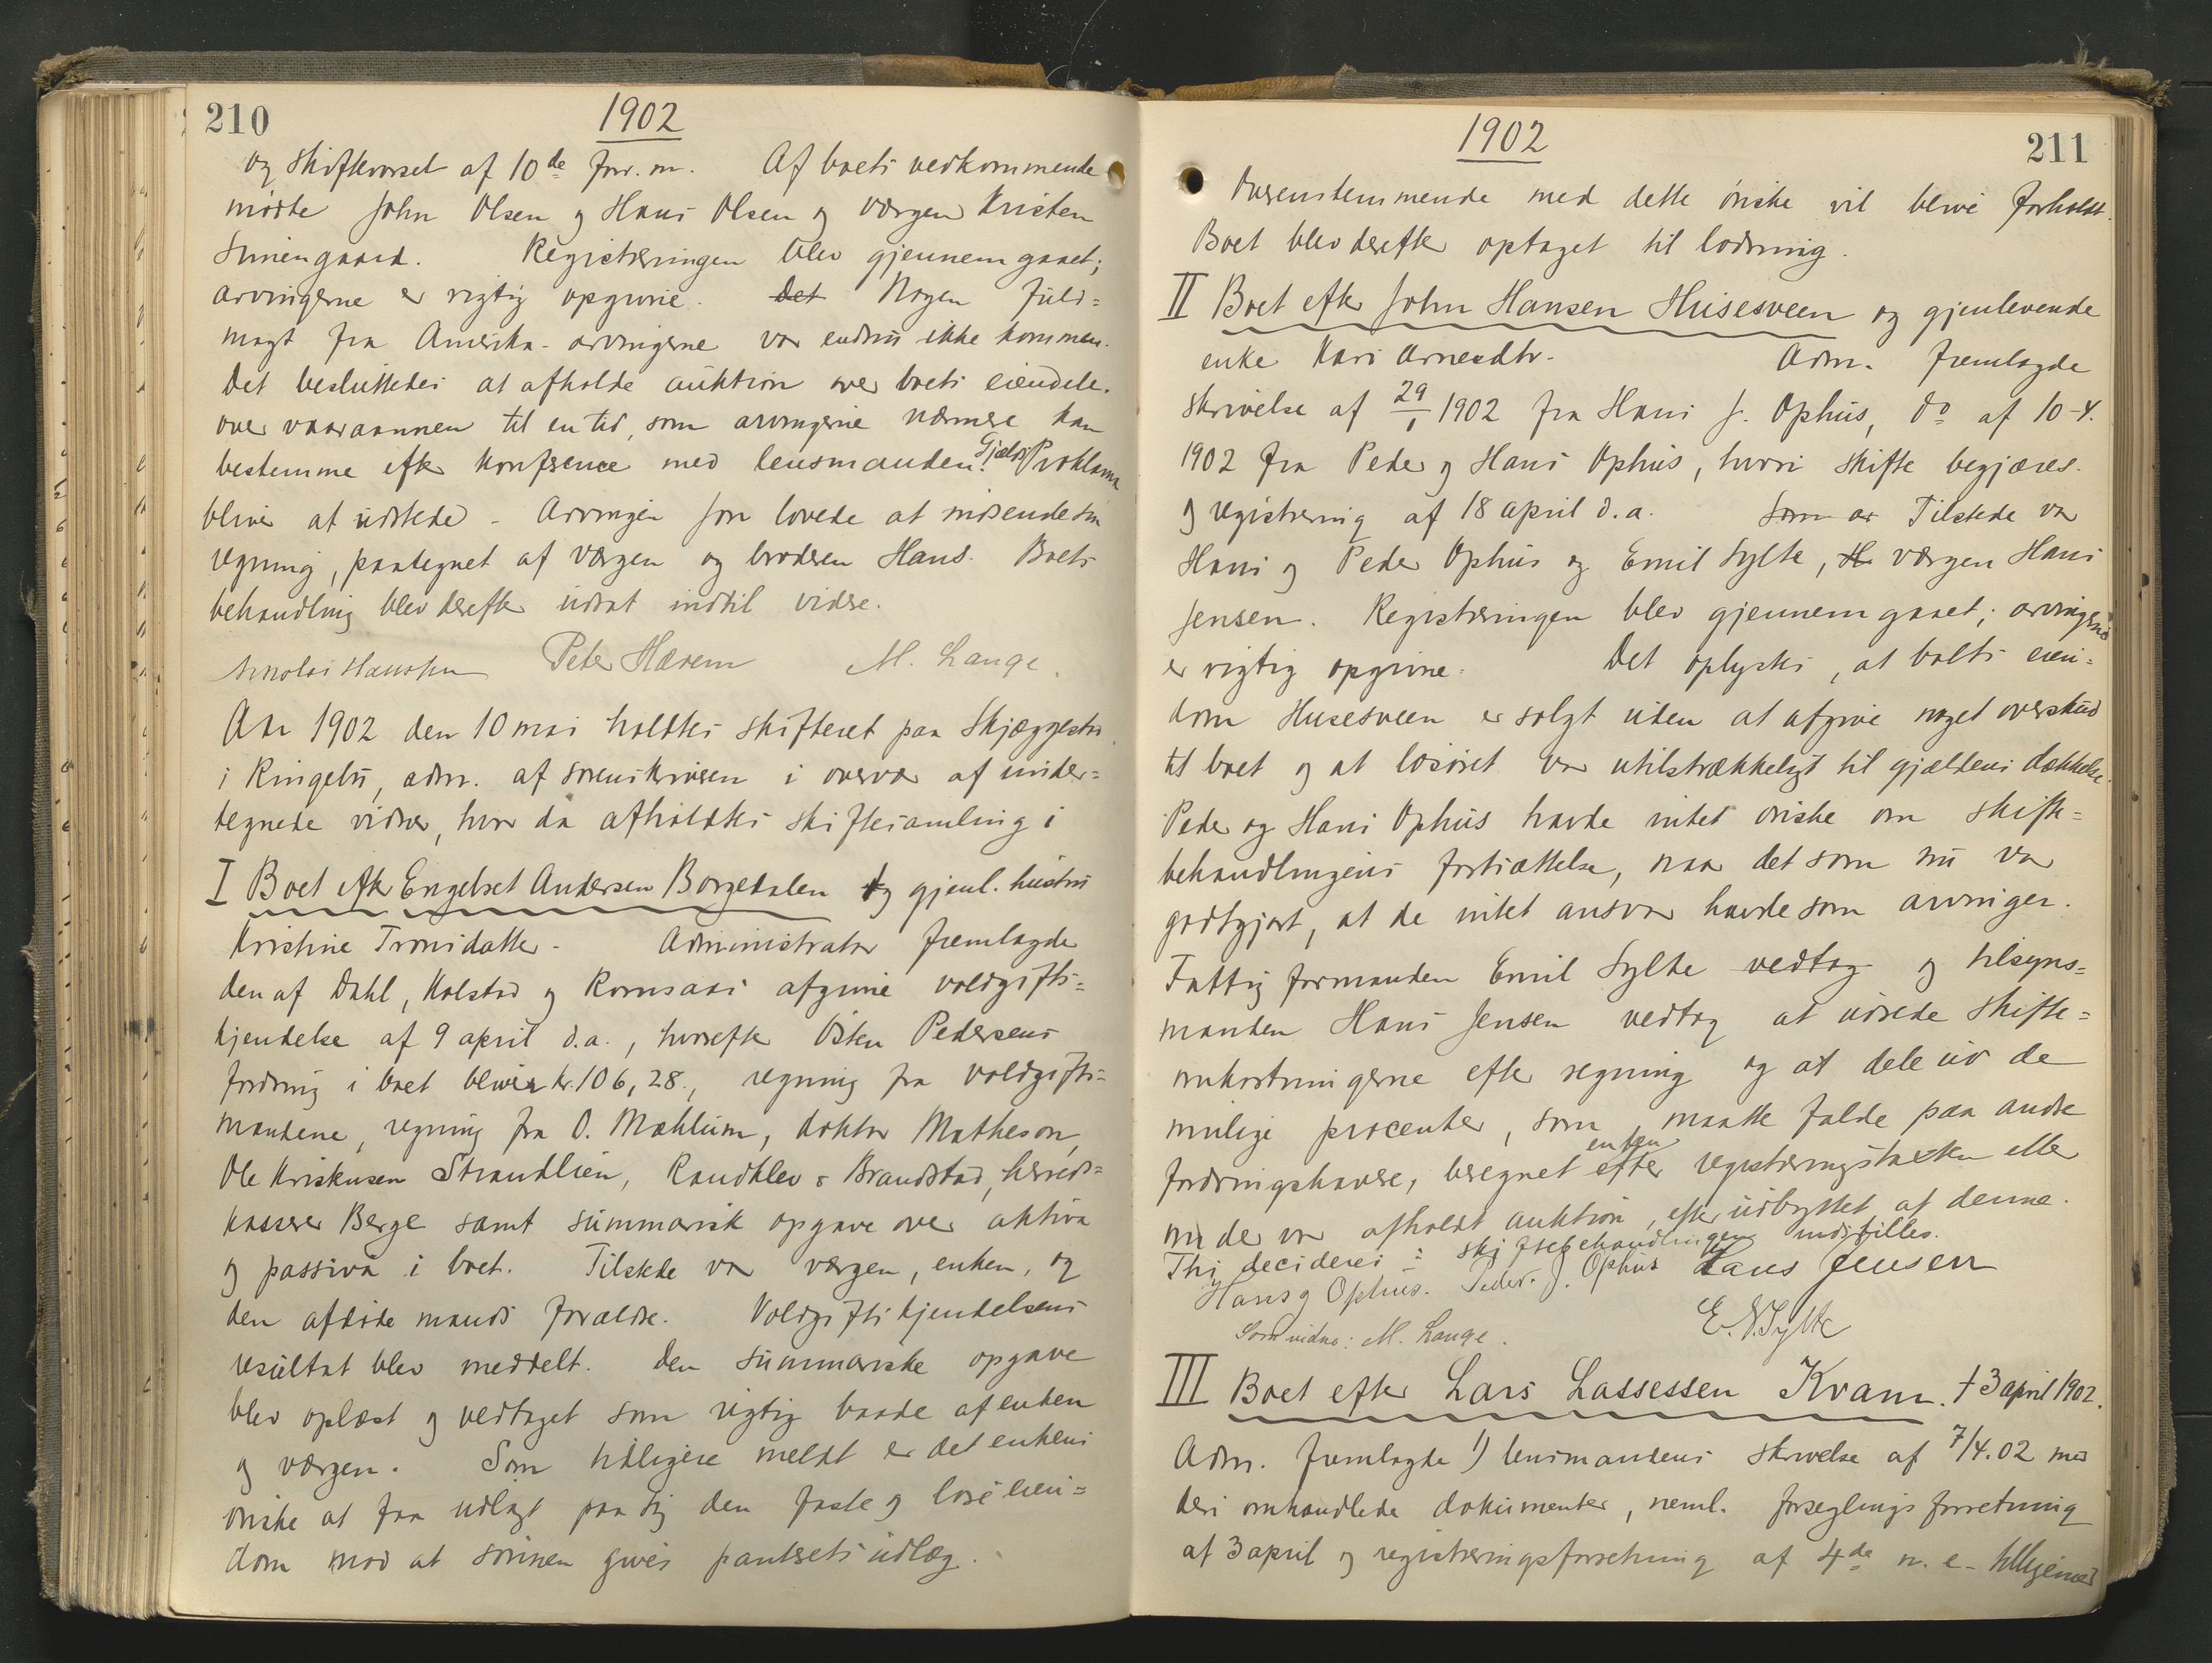 210
1902
og skiftevarsel af 10de forr. m. Af boets vedkommende
mødte John Olsen og Hans Olsen og værgen Kristen
Simengaard. Registreringen blev gjennemgaaet;
arvingerne er rigtig opgivne. Det Nogen fuld=
magt fra Amerika-arvingerne var endnu ikke kommen.
Det besluttedes at afholde auktion over boets eiendele.
over vaaraannen til en tid, som arvingerne nærmere kan
bestemme efter konference med lensmanden. Gjælds Proklama
bliver at udstede - Arvingen John lovede at indsende sin
regning, paategnet af værgen og broderen Hans. Boets
behandling blev derefter udsat indtil videre.
Nikolai Hanssen Peter Hærem M. Lange.
Aar 1902 den 10 mai holdtes skifteret paa Skjæggestad
i Ringebu, adm. af sorenskriveren i overvær af under=
tegnede vidner, hvor da afholdtes skiftesamling i
I Boet efter Engebret Andersen Borgedalen og gjenl. hustru
Kristine Tronsdatter. Administrator fremlagde
den af Dahl, Kolstad og Romsaas afgivne voldgifts=
kjendelse af 9 april d.a., hvorefter Østen Pedersens
fordring i boet bliver kr. 106,28., regning fra voldgifts=
mændene, regning fra O. Mæhlum, doktor Matheson,
Ole Kristensen Strandlien, Randklev & Brandstad, herreds=
kasserer Berge samt summarisk opgave over aktiva
og passiva i boet. Tilstede var værgen, enken, og
den afdøde mands forældre. Voldgiftskjendelsens
resultat blev meddelt. Den summariske opgave
blev oplæst og vedtaget som rigtig baade af enken
og værgen. Som tidligere meldt er det enkens
ønske at faa udlagt paa sig den faste og løse eien=
dom mod at sønnen gives panterets udlæg.
1902
211
Overenstemmende med dette ønske vil blive forholdt.
Boet blev derefter optaget til lodning.
II Boet efter John Hansen Husesveen og gjenlevende
enke Kari Arnesdtr. Adm. fremlagde
skrivelse af 29/1 1902 fra Hans J. Ophus, do af 10-4.
1902 fra Peder og Hans Ophus, hvori skifte begjæres.
og registrering af 18 april d.a. Som ar Tilstede var
Hans og Peder Ophus og Emil Sylte, H. værgen Hans
Jensen. Registreringen blev gjennemgaaet; arvingerne
er rigtig opgivne. Det oplystes, at boets eien=
dom Husesveen er solgt uden at afgive noget overskud
til boet og at løsøret var utilstrækkeligt til gjældens dækkelse.
Peder og Hans Ophus havde intet ønske om skifte=
behandlingens fortsættelse, naar det som nu var
godtgjort, at de intet ansvar havde som arvinger.
Fattigformanden Emil Sylte vedtog og tilsyns=
manden Hans Jensen vedtog at udrede skifte=
omkostningerne efter regning og at dele ud de
mulige procenter, som maatte falde paa andre
fordringshavere, beregnet enten efter registreringstaxten eller
om der var afholdt auktion, efter udbyttet af denne.
Thi decideres: skiftebehandlingen indstilles.
Hans J Ophus. Peder. J. Ophus Hans Jensen
Som vidne: M. Lange. E. N. Sylte
III Boet efter Lars Lassessen Kvam. † 3 april 1902.
Adm. fremlagde 1) lensmandens skrivelse af 7/4.02 med
deri omhandlede dokumenter, neml. forseglingsforretning
af 3 april og registreringsforretning af 4de n. e. tilligemed